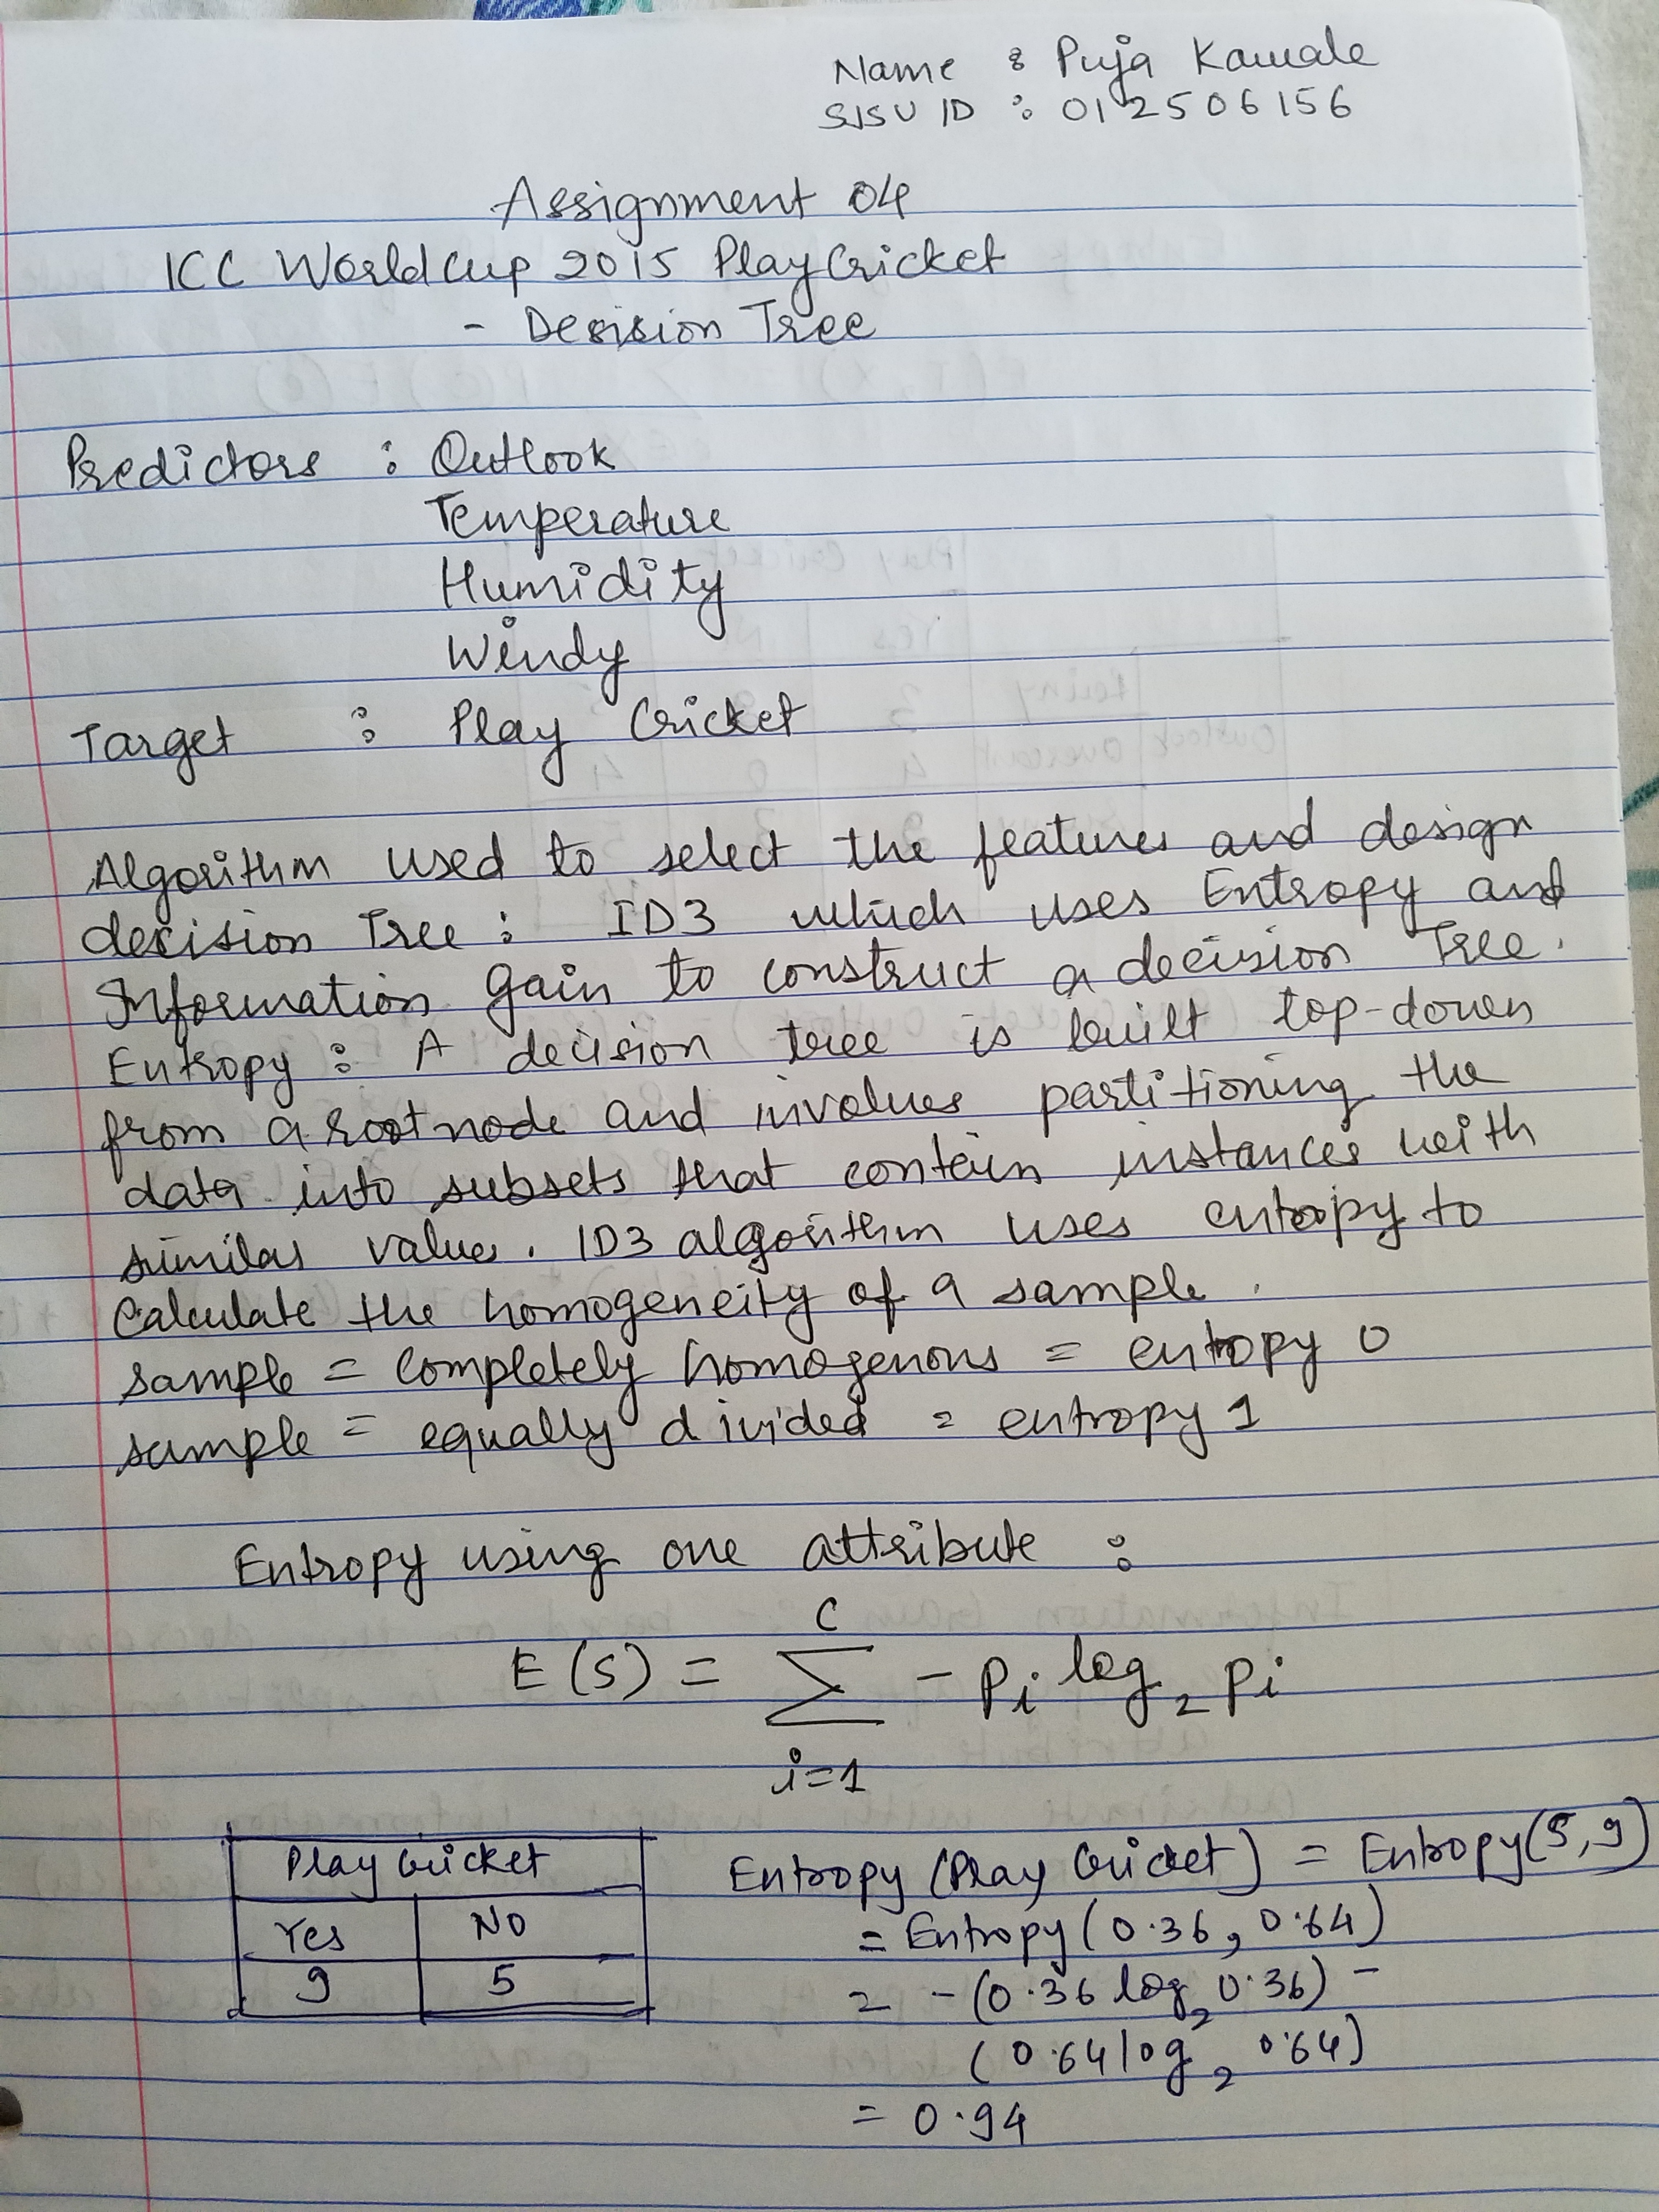 Name : Puja Kawale
SJSU ID : 012506156
Assignment 04
ICC WorldCup 2015 PlayCricket
- Decision Tree
Predictors : Outlook
Temperature
Humidity
Windy
Target : Play Cricket
Algorithm used to select the features and design
decision Tree : ID3 which uses Entropy and
Information Gain to construct a decision Tree.
Entropy : A decision tree is built top-down
from a root node and involves partitioning the
data into subsets that contain instances with
similar values. ID3 algorithm uses entropy to
Calculate the homogeneity of a sample.
sample = completely homogenous = entropy 0
sample = equally divided = entropy 1
Entropy using one attribute :
C
E(S) = ∑ - pi log2 pi
i=1
Play Cricket
Yes No
9 5
Entropy (Play Cricket) = Entropy(5,9)
= Entropy (0.36, 0.64)
= - (0.36 log2 0.36) -
(0.64 log2 0.64)
= 0.94